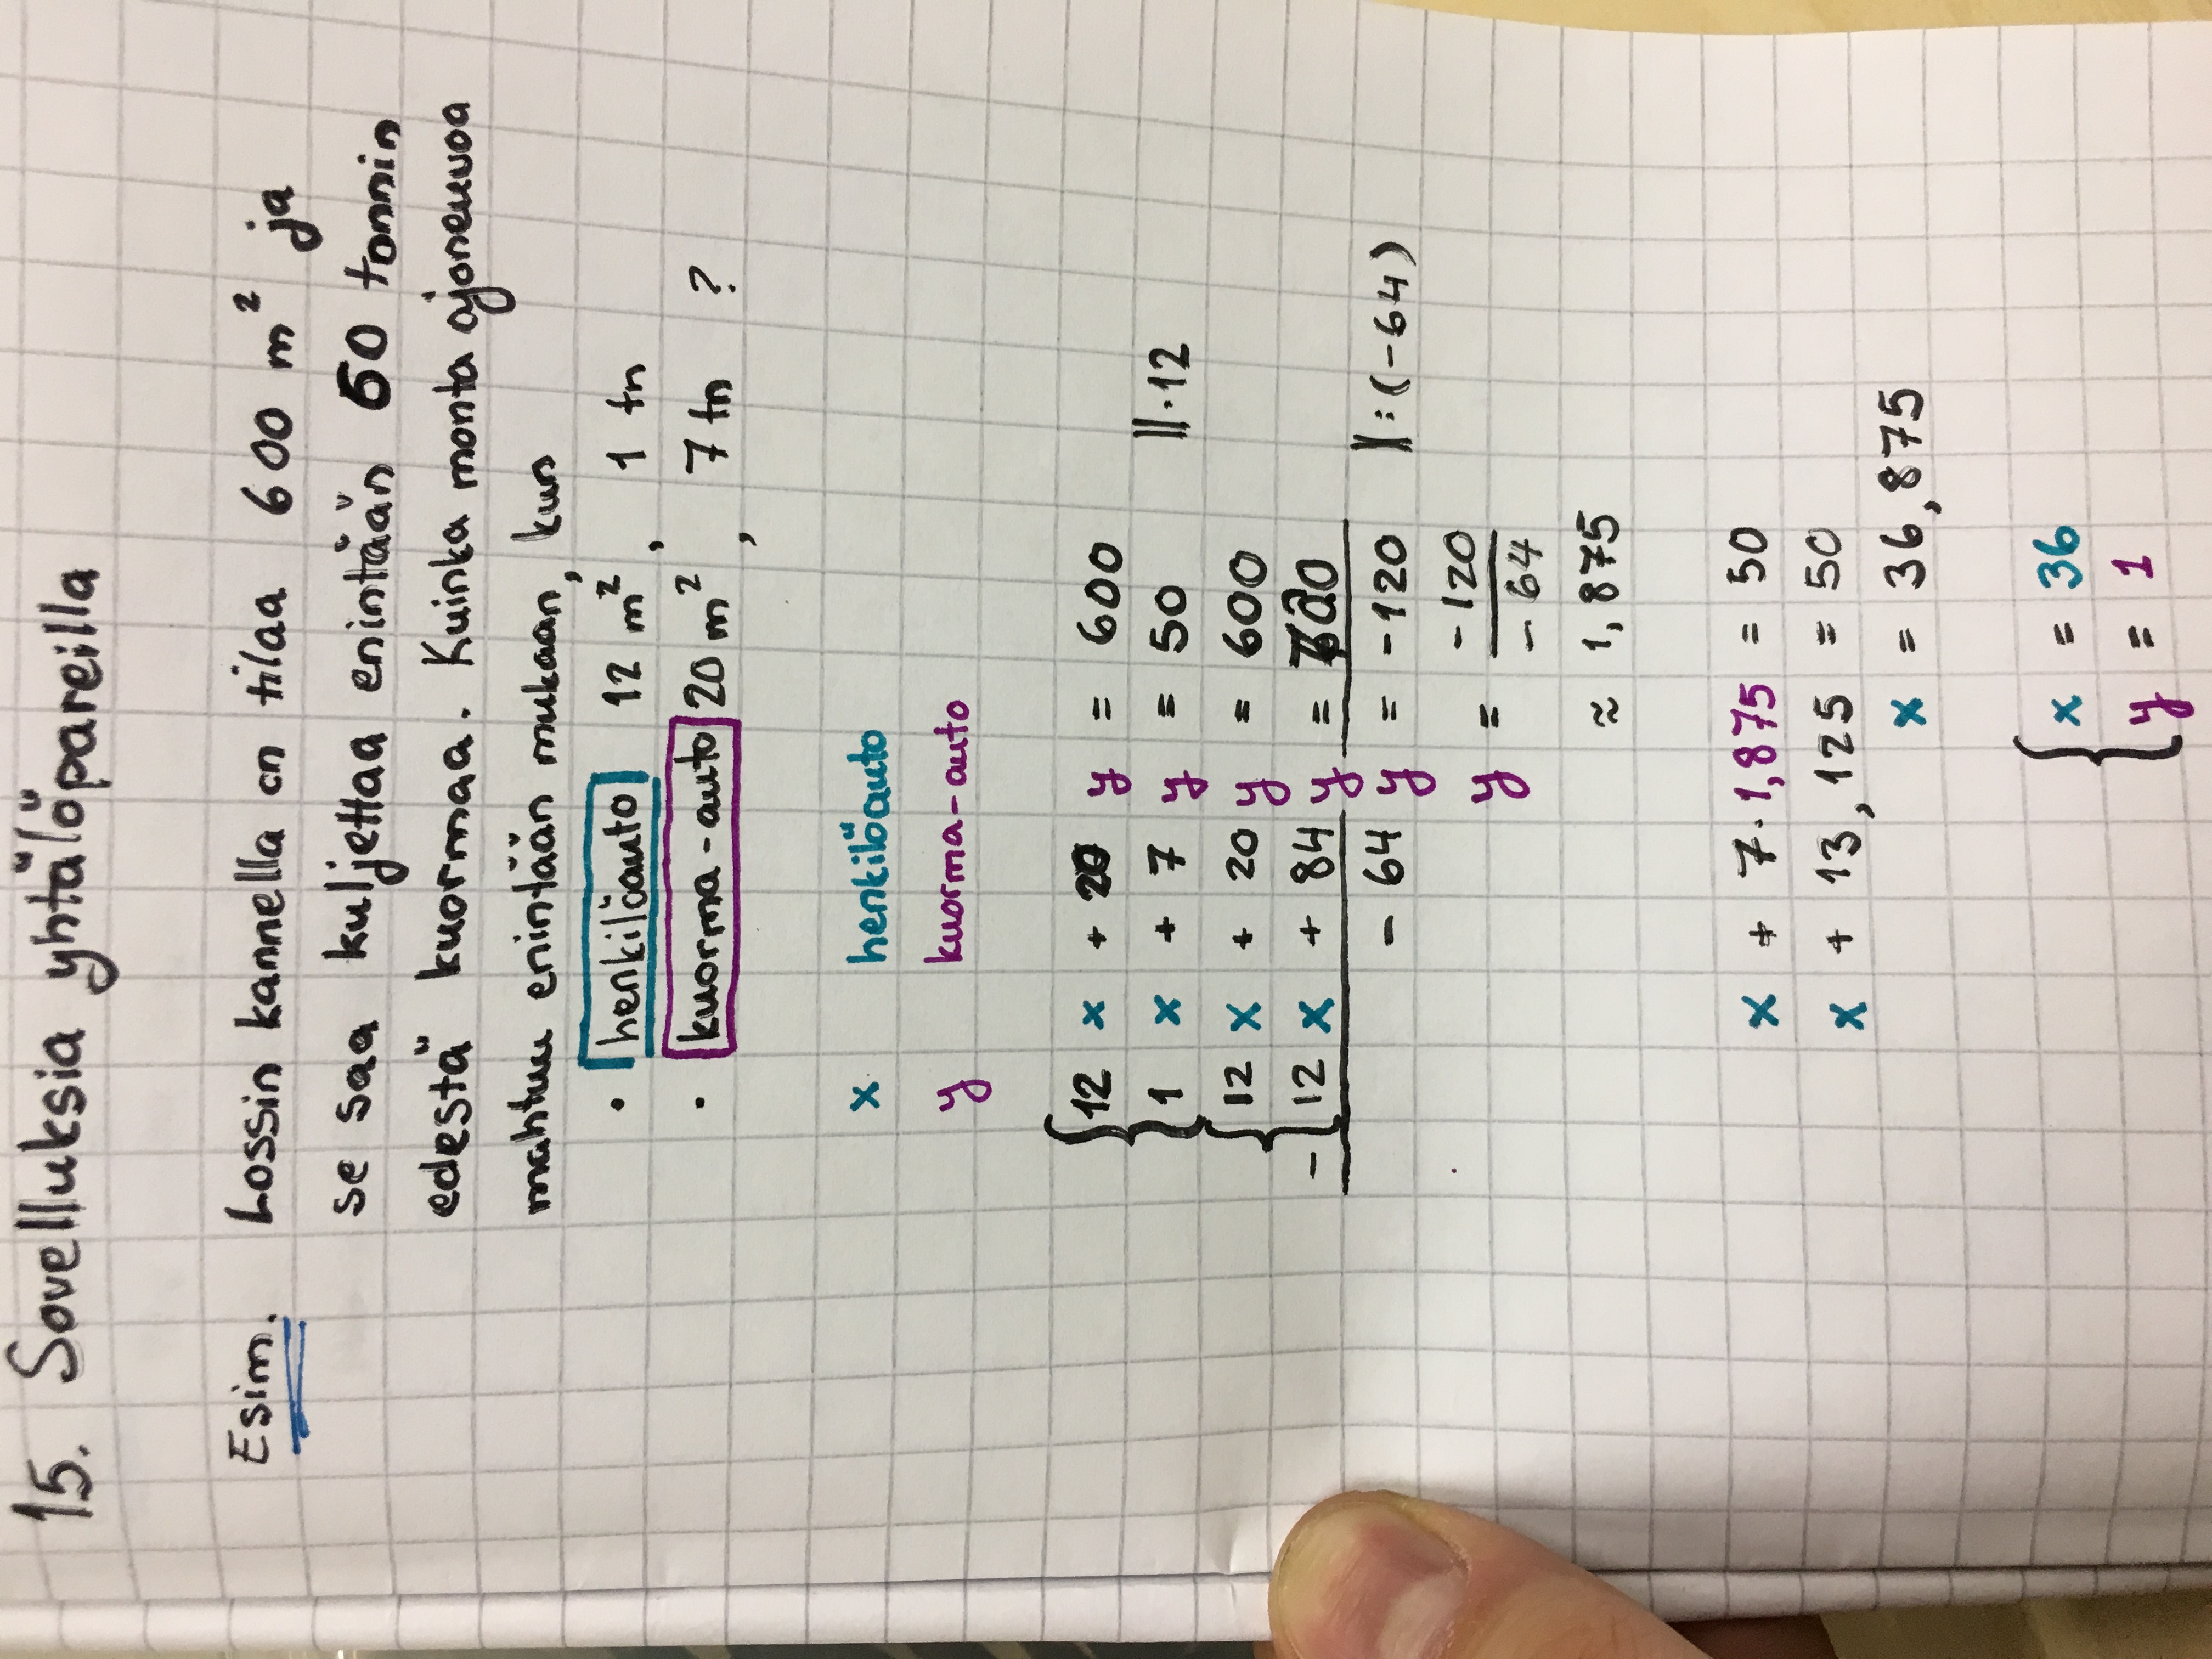 15. Sovelluksia yhtälöpareilla
Esim. Lossin kannella on tilaa 600 m² ja
se saa kuljettaa enintään 50 tonnin
edestä kuormaa. Kuinka monta ajoneuvoa
mahtuu enintään mukaan, kun
• henkilöauto 12 m², 1 tn
• kuorma-auto 20 m², 7 tn ?
x henkilöauto
y kuorma-auto
{ 12 x + 20 y = 600
1 x + 7 y = 50 ||·12
{ 12 x + 20 y = 600
- 12 x + 84 y =
- 64 y = -120 |:(-64)
y = -120 / -64
≈ 1,875
x + 7·1,875 = 50
x + 13,125 = 50
x = 36,875
{ x = 36
y = 1